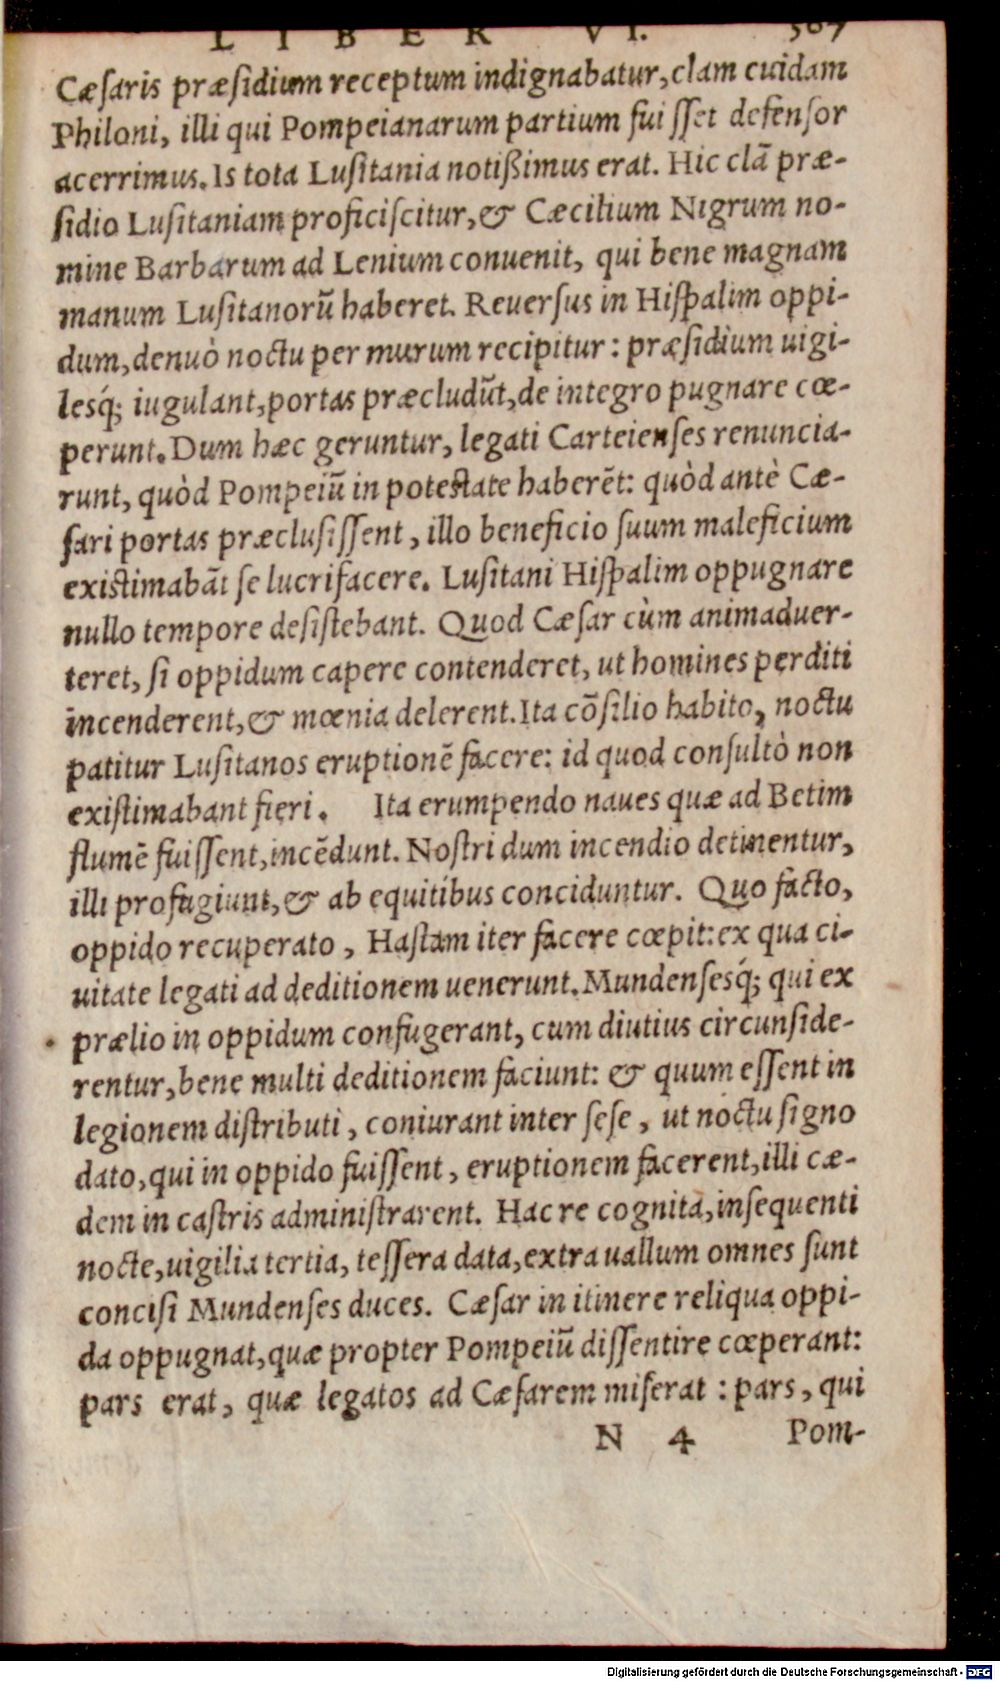 LIBER VI. 567
Cæſaris præſidium receptum indignabatur, clam cuidam
Philoni, illi qui Pompeianarum partium fuiſſet defenſor
acerrimus. Is tota Luſitania notißimus erat. Hic clā præ-
ſidio Luſitaniam proficiſcitur, & Cæcilium Nigrum no-
mine Barbarum ad Lenium conuenit, qui bene magnam
manum Luſitanorū haberet. Reuerſus in Hiſpalim oppi-
dum, denuò noctu per murum recipitur: præſidium uigi-
lesq́; iugulant, portas præcludūt, de integro pugnare cœ-
perunt. Dum hæc geruntur, legati Carteienſes renuncia-
runt, quòd Pompeiū in poteſtate haberēt: quòd antè Cæ-
ſari portas præcluſiſſent, illo beneficio ſuum maleficium
exiſtimabāt ſe lucrifacere. Luſitani Hiſpalim oppugnare
nullo tempore deſiſtebant. Quod Cæſar cùm animaduer-
teret, ſi oppidum capere contenderet, ut homines perditi
incenderent, & mœnia delerent. Ita cōſilio habito, noctu
patitur Luſitanos eruptionē facere: id quod conſultò non
exiſtimabant fieri. Ita erumpendo naues quæ ad Betim
flumē fuiſſent, incēdunt. Noſtri dum incendio detinentur,
illi profugiunt, & ab equitibus conciduntur. Quo facto,
oppido recuperato, Haſtam iter facere cœpit: ex qua ci-
uitate legati ad deditionem uenerunt. Mundenſesq́; qui ex
prælio in oppidum confugerant, cum diutius circunſide-
rentur, bene multi deditionem faciunt: & quum eſſent in
legionem diſtributi, coniurant inter ſeſe, ut noctu ſigno
dato, qui in oppido fuiſſent, eruptionem facerent, illi cæ-
dem in caſtris adminiſtrarent. Hac re cognita, inſequenti
nocte, uigilia tertia, teſſera data, extra uallum omnes ſunt
conciſi Mundenſes duces. Cæſar in itinere reliqua oppi-
da oppugnat, quæ propter Pompeiū diſſentire cœperant:
pars erat, quæ legatos ad Cæſarem miſerat: pars, qui
N 4 Pom-
Digitalisierung gefördert durch die Deutsche Forschungsgemeinschaft - DFG